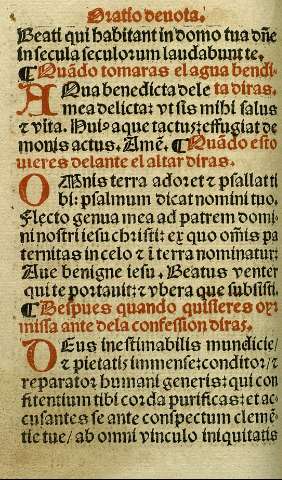 Oratio deuota.
Beati qui habitant in domo tua dn̄e
in secula seculorum laudabunt te.
¶ Quādo tomaras el agua bendi-
AQua benedicta dele ta diras.
mea delicta: vt sis mihi salus
⁊ vita. Huiꝰ aque tactus: effugiat de
monis actus. Amē. ¶ Quādo esto
uieres delante el altar diras.
OMnis terra adoret ⁊ psallat ti
bi: psalmum dicat nomini tuo.
Flecto genua mea ad patrem domi
ni nostri iesu christi: ex quo om̄is pa
ternitas in celo ⁊ ī terra nominatur:
Aue benigne iesu. Beatus venter
qui te portauit: ⁊ vbera que subsisti.
¶ Despues quando quisieres oyr
missa ante de la confession diras.
DEus inestimabilis mundicie/
⁊ pietatis immense: conditor/ ⁊
reparator humani generis: qui con
fitentium tibi corda purificas: et ac
cusantes se ante conspectum clemē-
tie tue/ ab omni vinculo iniquitatis